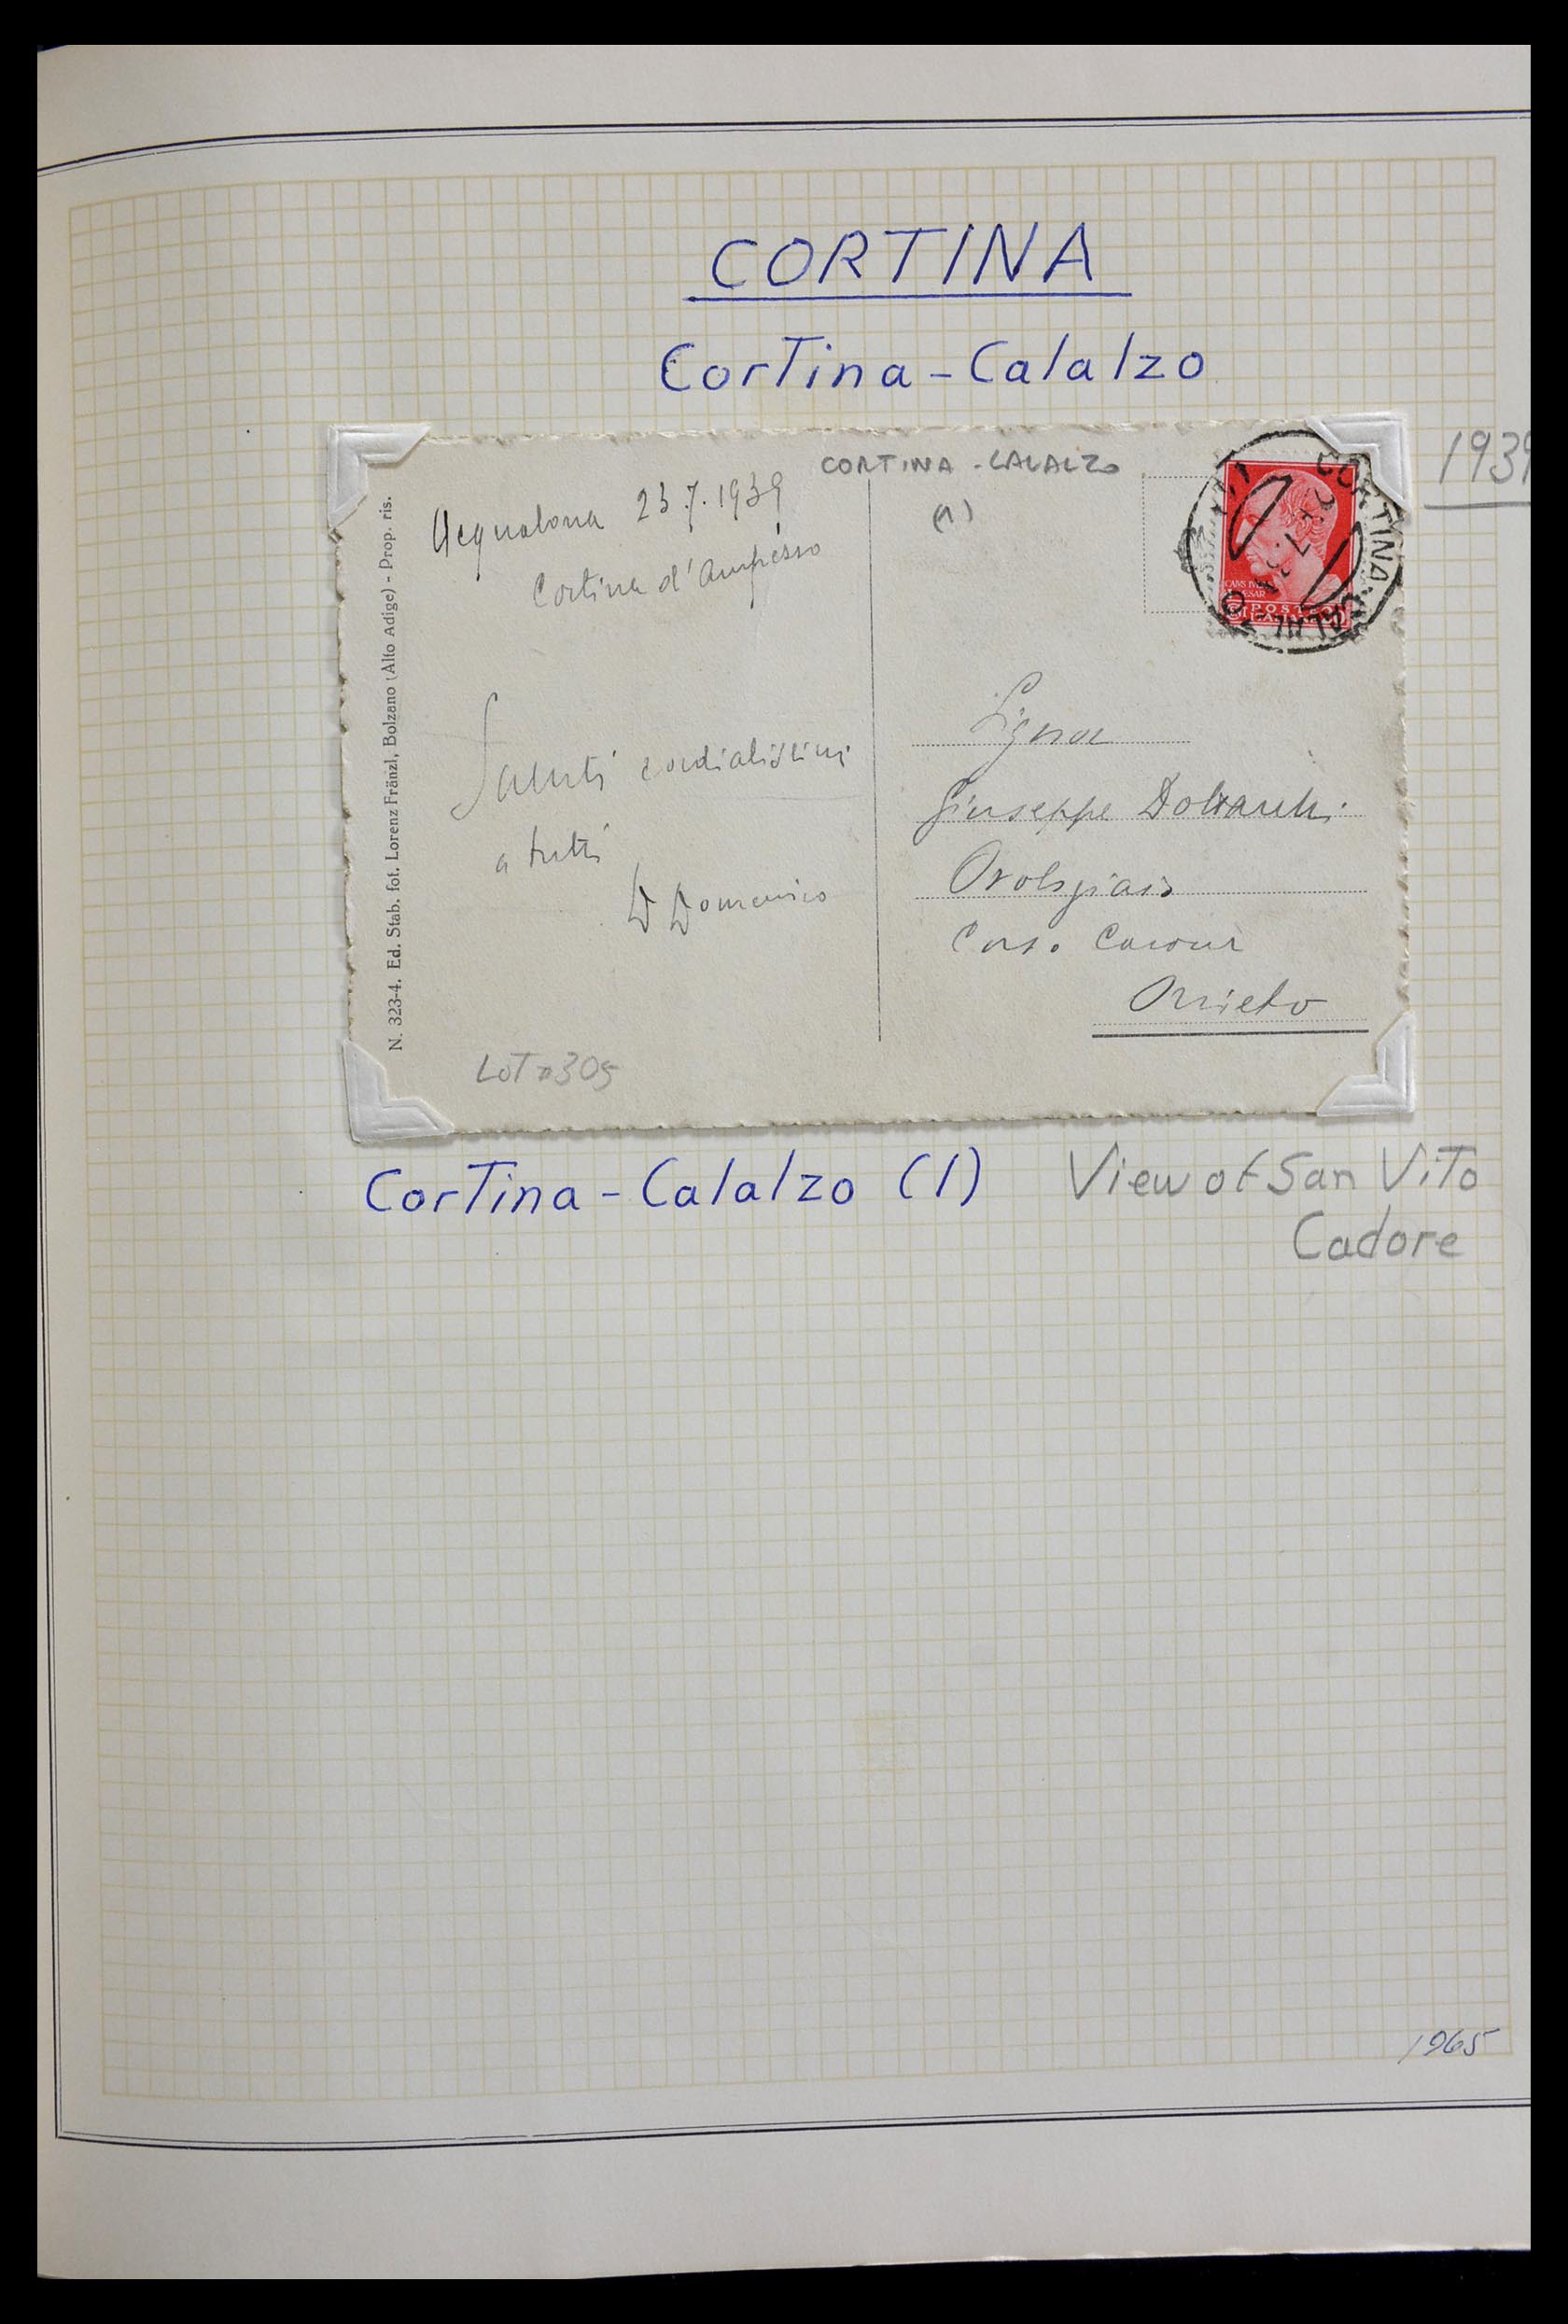 CORTINA
Cortina - Calalzo
1939
CORTINA - CALALZO
(1)
Acqualona 23.7.1939
Cortina d'Ampesso
Saluti cordialissimi
a tutti
D Domenico
LOT 305
N. 323-4. Ed. Stab. fot. Lorenz Fränzl, Bolzano (Alto Adige) - Prop. ris.
CORTINA
POSTE
Signor
Giuseppe
Orologiaio
Corso Cavour
Orvieto
Cortina - Calalzo (1)
View of San Vito
Cadore
1965